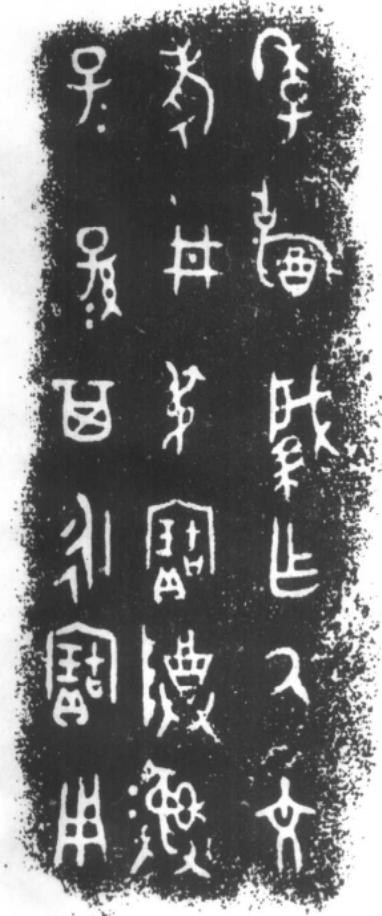 季肈乍氒文
考井叔寶尊彝
子=孫=其永寶用